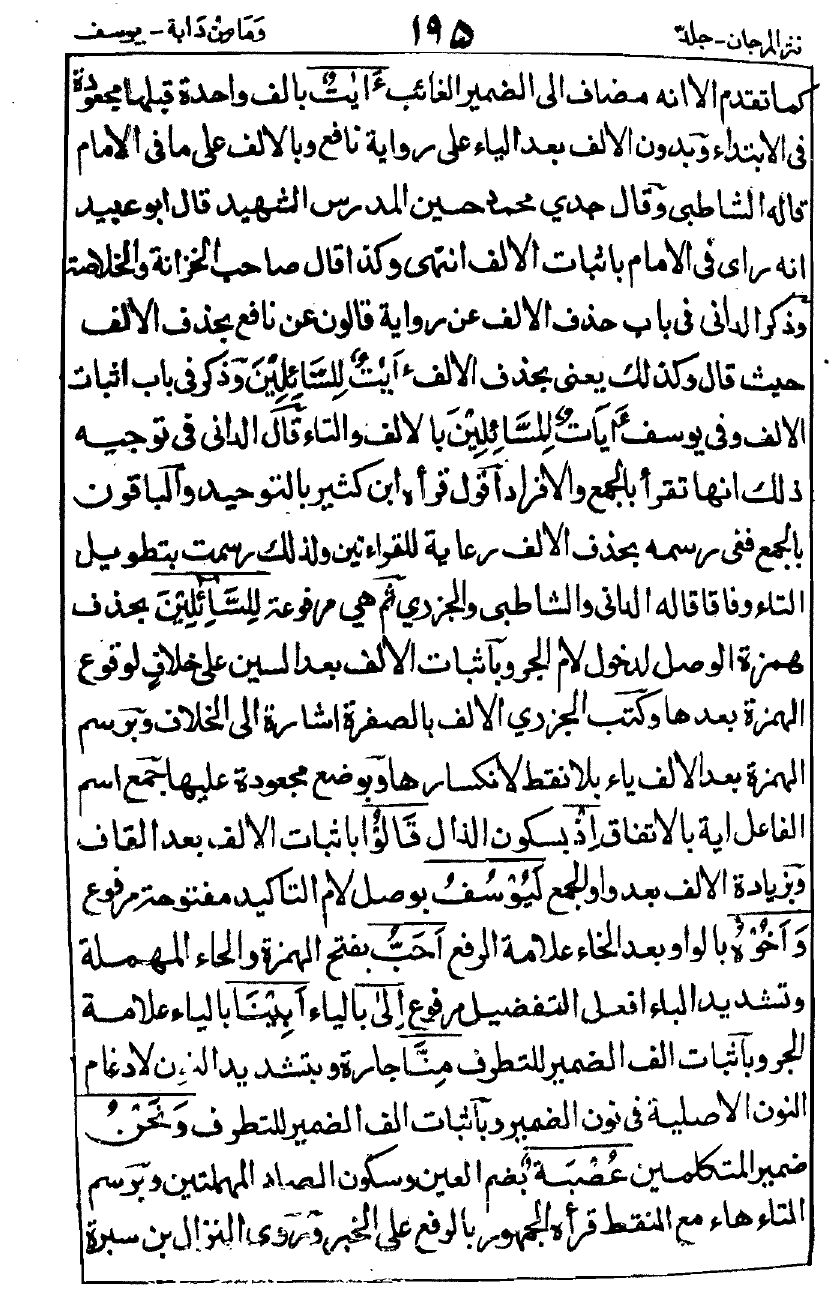 نثر المرجان - جلد
١٩٥
وَمَا مِنْ دَابة - يوسف
كما تقدم الا انه مضاف الى الضمير الغائب ءَايٰتٌ بالف واحدة قبلها مجعودة
فى الابتداء وَبدون الالف بعد الياء على رواية نافع وبالالف على ما فى الامام
قاله الشاطبى وَقال جدي محمد حسين المدرس الشهيد قال ابو عبيد
انه راى فى الامام باثبات الالف انتهى وكذا قال صاحب الخزانة والخلاصة
وَذكر الدانى فى باب حذف الالف عن رواية قالون عن نافع بحذف الالف
حيث قال وكذلك يعنى بحذف الالف ءَايٰتٌ لِلسَّائِلِيْنَ وَذكر فى باب اثبات
الالف وفى يوسف ءَايَاتٌ لِلسَّائِلِيْنَ بالالف والتاء قَال الدانى فى توجيه
ذلك انها تقرأ بالجمع والافراد اَقول قرأه ابن كثير بالتوحيد وَالباقون
بالجمع ففى رسمه بحذف الالف رعاية للقراءتين ولذلك رسمت بتطويل
التاء وفاقا قاله الدانى والشاطبى والجزري ثم هي مرفوعة لِلسَّآئِلِيْنَ بحذف
همزة الوصل لدخول لام الجر وبآثبات الالف بعد السين على خلافٍ لوقوع
الهمزة بعدها وكَتب الجزري الالف بالصفرة اشارة الى الخلاف وَبرسم
الهمزة بعد الالف ياء بلا نقط لانكسارها وَبوضع مجعودة عليها جَمع اسم
الفاعل اية بالاتفاق اِذْ بسكون الذال قَالُوْا باثبات الالف بعد القاف
وَبزيادة الالف بعد واو الجمع لَيُوْسُفُ بوصل لام التاكيد مفتوحة مرفوع
وَاَخُوْهُ بالواو بعد الخاء علامة الرفع اَحَبُّ بفتح الهمزة والحاء المهملة
وتشديد الباء افعل التفضيل مرفوع اِلىٰ بالياء اَبِيْنَا بالياء علامة
الجر وبآثبات الف الضمير للتطرف مِنَّا جارة وبتشديد النون لادغام
النون الاصلية فى نون الضمير وبآثبات الف الضمير للتطرف وَنَحْنُ
ضمير المتكلمين عُصْبَةٌ بضم العين وسكون الصاد المهملتين وَبرسم
التاء هاء مع النقط قرأه الجمهور بالرفع على الخبر وَرَوى النزال بن سبرة